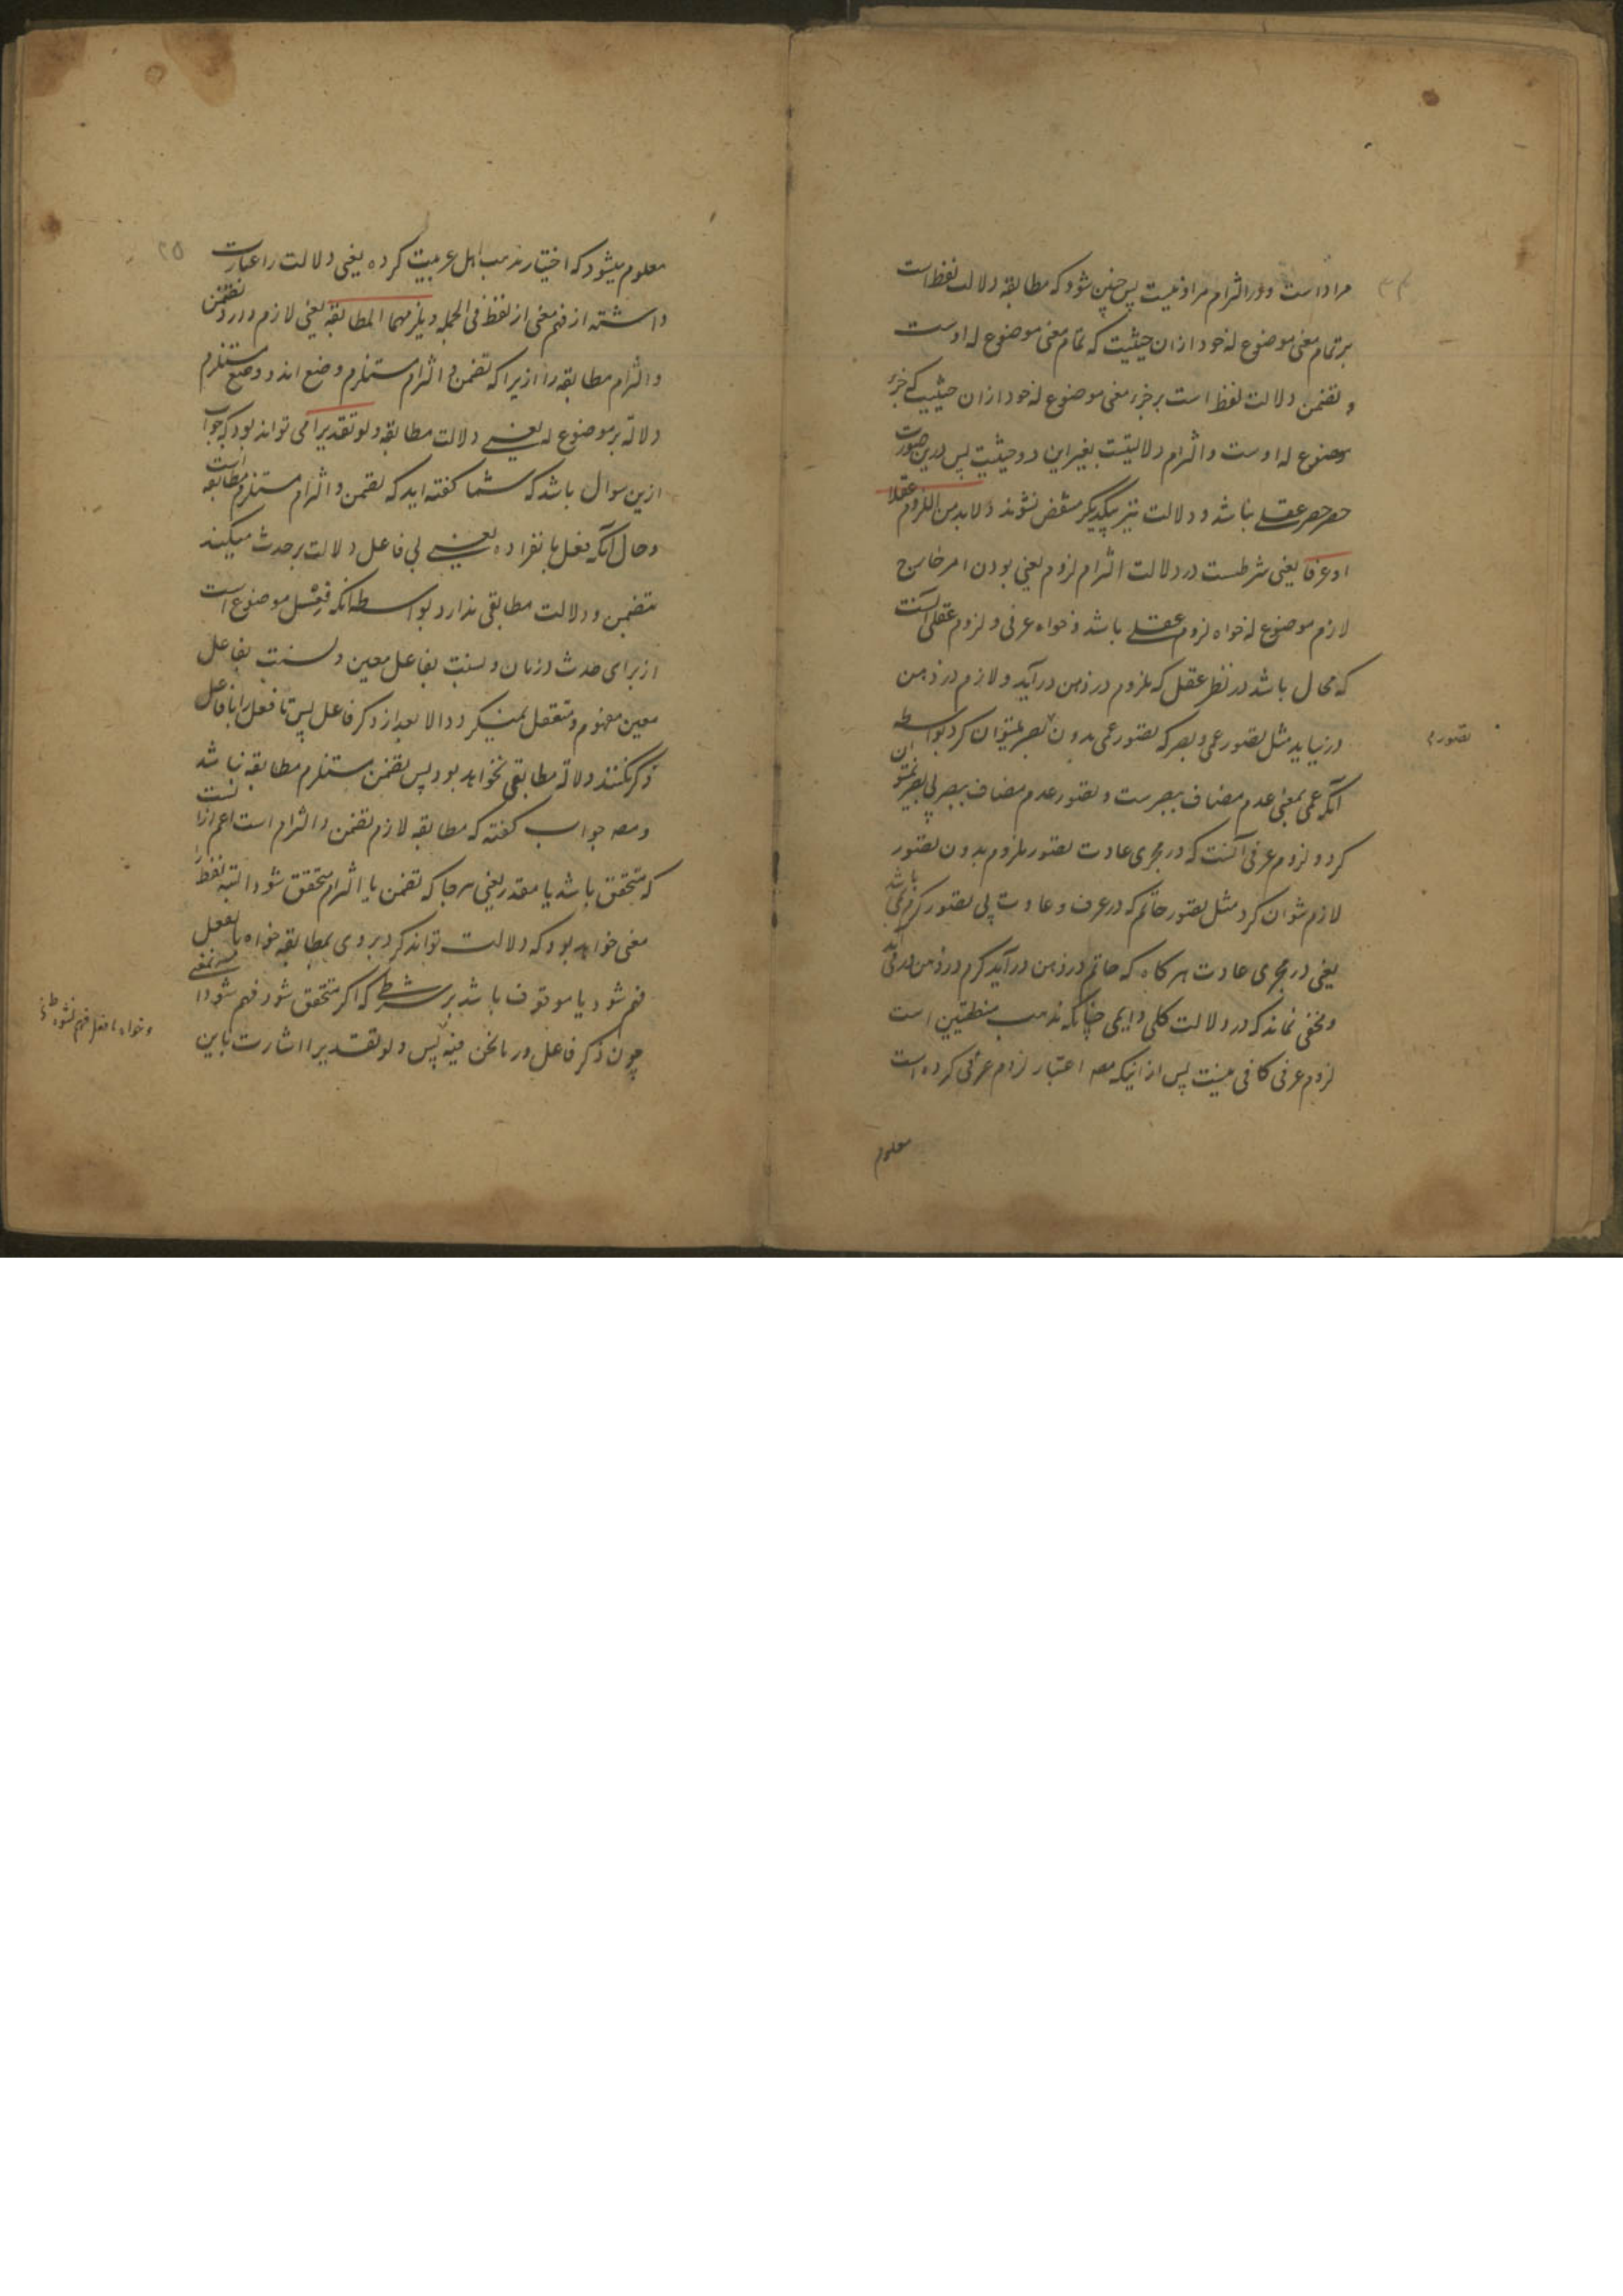 مراد است و در التزام مراد نیست پس چنین شود که مطابقه دلالت لفظ است
بر تمام معنی موضوع له خود ازان حیثیت که تمام معنی موضوع له اوست
و تضمن دلالت لفظ است بر جزء معنی موضوع له خود ازان حیثیت که جزء
موضوع له اوست و التزام دلالتیست بغیر این دو حیثیت پس درین صورت
حصر حصر عقلی نباشد و دلالت نیز بیکدیگر منتقض نشوند و لابد من اللزوم عقلا
او عرفا یعنی شرطست در دلالت التزام لزوم یعنی بودن امر خارج
لازم موضوع له خواه لزوم عقلی باشد و خواه عرفی و لزوم عقلی آنست
که محال باشد در نظر عقل که ملزوم در ذهن درآید و لازم در ذهن
درنیاید مثل تصور عمی و بصر که تصور عمی بدون بصر نمیتوان کرد بواسطه
تصورم
آنکه عمی بمعنی عدم مضاف ببصرست و تصور عدم مضاف ببصر بی بصر نمیتوان
کرد و لزوم عرفی آنست که در مجری عادت تصور ملزوم بدون تصور
لازم نتوان کرد مثل تصور حاتم که در عرف و عادت بی تصور کرم نمی باشد
یعنی در مجری عادت هرگاه که حاتم در ذهن درآید کرم در ذهن درآید
و مخفی نماند که در دلالت کلی دایمی چنانکه مذهب منطقیین است
لزوم عرفی کافی نیست پس از اینکه مصه اعتبار لزوم عرفی کرده است
معلوم
۲۵
معلوم میشود که اختیار مذهب اهل عربیت کرده یعنی دلالت را عبارت
داشته از فهم معنی از لفظ فی الجمله و یلزمهما المطابقه یعنی لازم دارد تضمن
و التزام مطابقه را ازیرا که تضمن و التزام مستلزم وضع اند و وضع مستلزم
دلالة بر موضوع له یعنی دلالت مطابقه و لو تقدیرا می تواند بود که جواب
ازین سوال باشد که شما گفته اید که تضمن و التزام مستلزم مطابقه است
و حال آنکه فعل بانفراده یعنی بی فاعل دلالت بر حدث میکند
بتضمن و دلالت مطابقی ندارد بواسطه آنکه فعل موضوع است
از برای حدث و زمان و نسبت بفاعل معین و نسبت بفاعل
معین مفهوم و متعقل نمیگردد الا بعد از ذکر فاعل پس تا فعل را با فاعل
ذکر نکنند دلالة مطابقی نخواهد بود پس تضمن مستلزم مطابقه نباشد
و مصه جواب گفته که مطابقه لازم تضمن و التزام است اعم ازانست
که متحقق باشد یا مقدر یعنی هرجا که تضمن یا التزام متحقق شود البته لفظ را
معنی خواهد بود که دلالت تواند کرد بروی بمطابقه خواه بالفعل
فهم شود یا موقوف باشد بر شرطی که اگر متحقق شود فهم شود
و خواه بالفعل فهم نشود
چون ذکر فاعل در مانحن فیه پس و لو تقدیرا اشارت باین